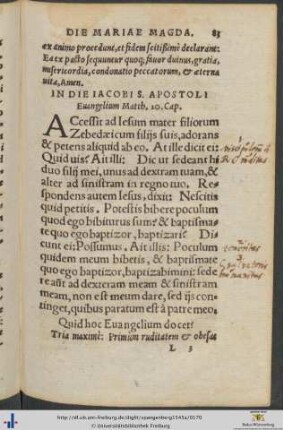 DIE MARIAE MAGDA. 83
ex animo procedunt, et fidem scitissimè declarant:
Ea ex pacto sequuntur quoq; fauor diuinus, gratia,
misericordia, condonatio peccatorum, & æterna
uita, Amen.
IN DIE IACOBI S. APOSTOLI
Euangelium Matth. 20. Cap.
ACcessit ad Iesum mater filiorum
Zebedæi cum filijs suis, adorans
& petens aliquid ab eo. At ille dicit ei:
Quid uis? Ait illi: Dic ut sedeant hi
duo filij mei, unus ad dextram tuam, &
alter ad sinistram in regno tuo. Re
spondens autem Iesus, dixit: Nescitis
quid petitis. Potestis bibere poculum
quod ego bibiturus sum? & baptisma-
te quo ego baptizor, baptizari? Di
cunt ei: Possumus. Ait illis: Poculum
quidem meum bibetis, & baptismate
quo ego baptizor, baptizabimini: sede
re ast ad dexteram meam & sinistram
meam, non est meum dare, sed ijs con-
tinget, quibus paratum est à patre meo.
Quid hoc Euangelium docet?
Tria maximè: Primùm ruditatem & obscæ
L 3
http://dl.ub.uni-freiburg.de/diglit/spangenberg1545a/0170
© Universitätsbibliothek Freiburg